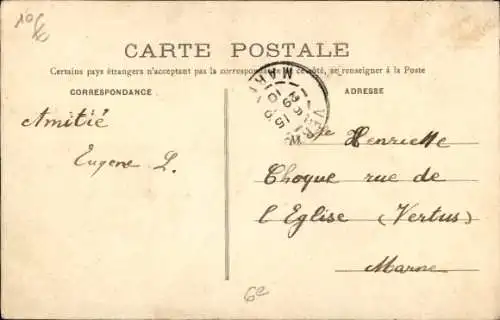 10€
CARTE POSTALE
Certains pays étrangers n'acceptant pas la correspondance de ce côté, se renseigner à la Poste
CORRESPONDANCE
ADRESSE
Amitié
Eugene L.
Henriette
Choque rue de
l'Eglise (Vertus)
Marne
6e